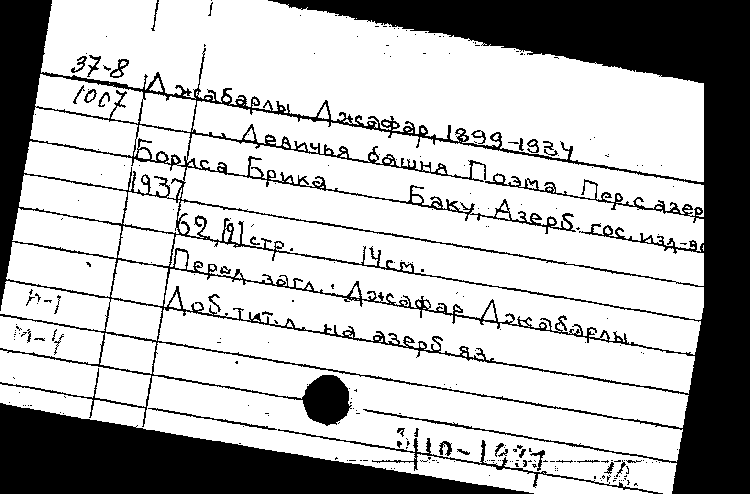 37-8
1007
Джабарлы, Джафар, 1899-1934.
... Девичья башня. Поэма. Пер. с азер
Бориса Брика. Баку, Азерб. гос. изд-во
1937
62, [2] стр. 14 см.
Перед загл.: Джафар Джабарлы.
Доб. тит. л. на азерб. яз.
М-4
3/10-1937